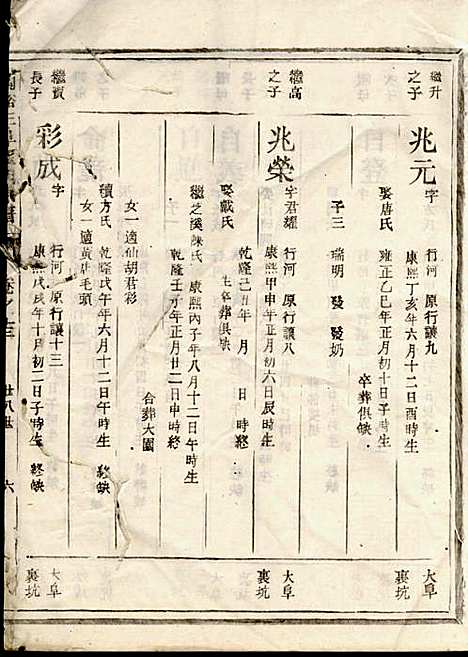 繼升
之子
兆元 字 行河 原行讓九
康熙丁亥年六月十二日酉時生
娶唐氏 雍正乙巳年正月初十日子時生
卒葬俱缺
子三 瑞明 發 發奶
大阜
裏坑
繼高
之子
兆榮 字君耀 行河 原行讓八
康熙甲申年正月初六日辰時生
乾隆己丑年 月 日 時終
娶戴氏 生卒葬俱缺
繼之溪陳氏 康熙丙子年八月十二日午時生
乾隆壬子年正月廿二日申時終
合葬大園
子一
女一適仙胡君彩
續方氏 乾隆戊午年六月十二日午時生 終缺
女一適黃唐毛頭
大阜
裏坑
繼賓
長子
彩成 字 行河 原行讓十三
康熙戊戌年十月初二日子時生 終缺
大阜
裏坑
卷之三
廿八世
六